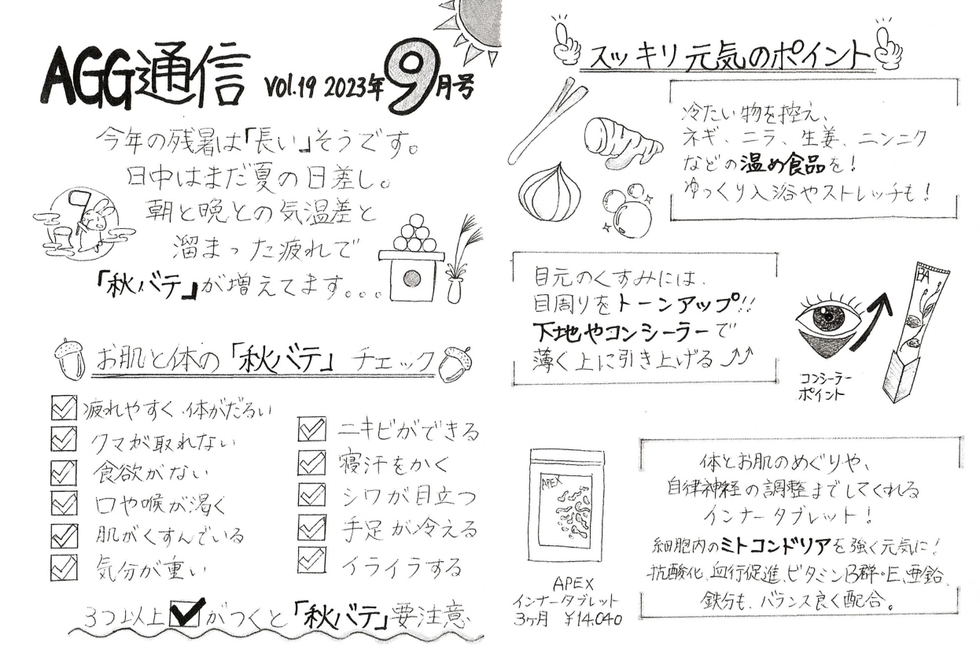 AGG通信 VOL.19 2023年9月号
今年の残暑は「長い」そうです。
日中はまだ夏の日差し。
朝と晩との気温差と
溜まった疲れで
「秋バテ」が増えてます。。。
お肌と体の「秋バテ」チェック
疲れやすく、体がだるい
クマが取れない
食欲がない
口や喉が渇く
肌がくすんでいる
気分が重い
ニキビができる
寝汗をかく
シワが目立つ
手足が冷える
イライラする
3つ以上がつくと「秋バテ」要注意
スッキリ元気のポイント
冷たい物を控え、
ネギ、ニラ、生姜、ニンニク
などの温め食品を!
ゆっくり入浴やストレッチも!
目元のくすみには、
目周りをトーンアップ!!
下地やコンシーラーで
薄く上に引き上げる
BA
コンシーラー
ポイント
APEX
APEX
インナータブレット
3ヶ月 ¥14.040
体とお肌のめぐりや、
自律神経の調整までしてくれる
インナータブレット!
細胞内のミトコンドリアを強く元気に!
抗酸化、血行促進、ビタミンB群・E、亜鉛、
鉄分も、バランス良く配合。